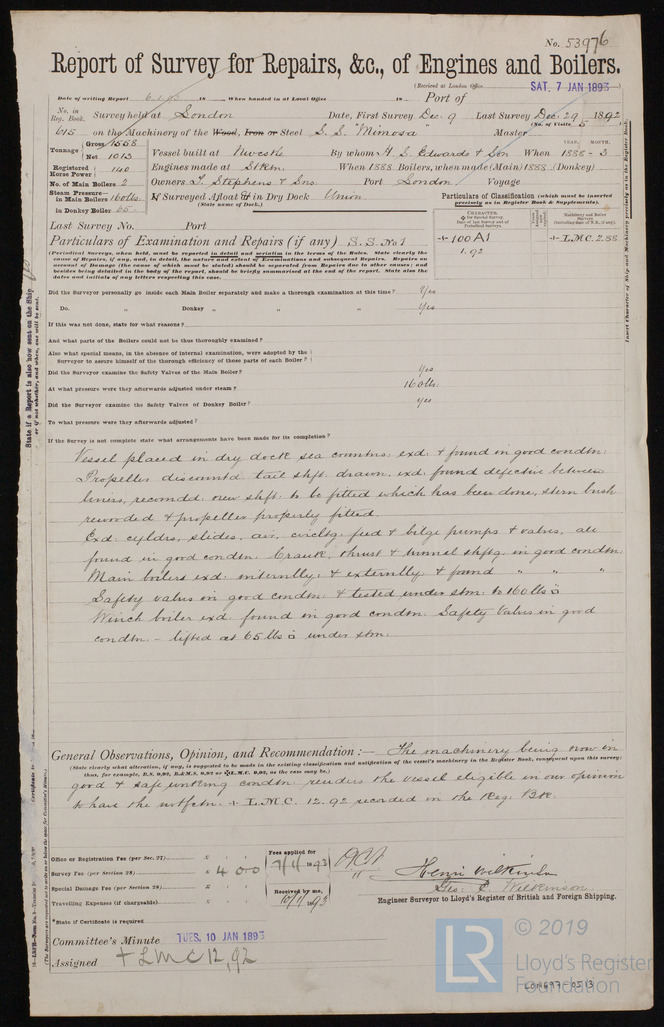 No. 53976
Report of Survey for Repairs, &c., of Engines and Boilers.
(Received at London Office SAT. 7 JAN 1893)
Date of writing Report 6.1.93 18 When handed in at Local Office 18 Port of
No. in Reg. Book. 615 Survey held at London Date, First Survey Dec. 9 Last Survey Dec. 29 1892
(No. of Visits 5)
on the Machinery of the Wood, Iron or Steel S.S. "Mimosa" Master
Tonnage Gross 1558 Net 1013
Vessel built at Nwcstle By whom H. S. Edwards & Son When YEAR. 1888 - MONTH. 3
Registered Horse Power 140
Engines made at Slkm. When 1888 Boilers, when made (Main) 1888 (Donkey)
No. of Main Boilers 2
Owners T. Stephens & Sns. Port London Voyage
Steam Pressure— in Main Boilers 160lbs.
in Donkey Boiler 65
If Surveyed Afloat or in Dry Dock Union
(State name of Dock.)
Particulars of Classification (which must be inserted precisely as in Register Book & Supplements).
Last Survey No. Port
CHARACTER
+ 100 A1
1.92
Machinery and Boiler Surveys
+ L.M.C. 2.88
Particulars of Examination and Repairs (if any) S.S. No 1
(Periodical Surveys, when held, must be reported in detail and seriatim in the terms of the Rules. State clearly the cause of Repairs, if any, and, in detail, the nature and extent of Examinations and subsequent Repairs. Repairs on account of Damage (the cause of which must be stated) should be separated from Repairs due to other causes; and besides being detailed in the body of the report, should be briefly summarised at the end of the report. State also the dates and initials of any letters respecting this case.
Did the Surveyor personally go inside each Main Boiler separately and make a thorough examination at this time? Yes
Do. " Donkey " " " Yes
If this was not done, state for what reasons?
And what parts of the Boilers could not be thus thoroughly examined?
Also what special means, in the absence of internal examination, were adopted by the Surveyor to assure himself of the thorough efficiency of these parts of each Boiler?
Did the Surveyor examine the Safety Valves of the Main Boiler? Yes
At what pressure were they afterwards adjusted under steam? 160lbs.
Did the Surveyor examine the Safety Valves of Donkey Boiler? Yes
To what pressure were they afterwards adjusted?
If the Survey is not complete state what arrangements have been made for its completion?
Vessel placed in dry dock sea conntns: exd: & found in good condtn:
Propeller disconntd tail shft. drawn, exd: found defective between
liners, recomdd: new shft: to be fitted which has been done, stern bush
rewooded & propeller properly fitted.
Exd: cylders, slides, air, circltg: feed & bilge pumps & valves, all
found in good condtn: Crank, thrust & tunnel shftg. in good condtn:
Main boilers exd: internally: & externally: & found " " "
Safety valves in good condtn: & tested under stm: to 160 lbs ☐
Winch boiler exd: found in good condtn: Safety Valves in good
condtn: - lifted at 65 lbs ☐ under stm:
General Observations, Opinion, and Recommendation:— The machinery being now in
(State clearly what alteration, if any, is suggested to be made in the existing classification and notification of the vessel's machinery in the Register Book, consequent upon this survey: thus, for example, B.S. 9,92, B.&M.S. 9,92 or +L.M.C. 9,92, as the case may be.)
good & safe working condtn: renders the vessel eligible in our opinion
to have the notfctn: + L.M.C. 12.92 recorded in the Reg: Bk.
Office or Registration Fee (per Sec. 27)
Survey Fee (per Section 28) £ 4 0 0
Special Damage Fee (per Section 28)
Travelling Expenses (if chargeable)
Fees applied for 7/1/1893
Received by me, 10/1/1893
Henri Wilkinson
Geo: C. Wilkinson
Engineer Surveyor to Lloyd's Register of British and Foreign Shipping.
*State if Certificate is required
Committee's Minute TUES. 10 JAN 1893
Assigned + LMC 12,92
State if a Report is also now sent on the Ship or if not whether, and when, one will be sent.
Insert Character of Ship and Machinery precisely as in the Register Book.
LR
© 2019
Lloyd's Register
Foundation
LON697-0513